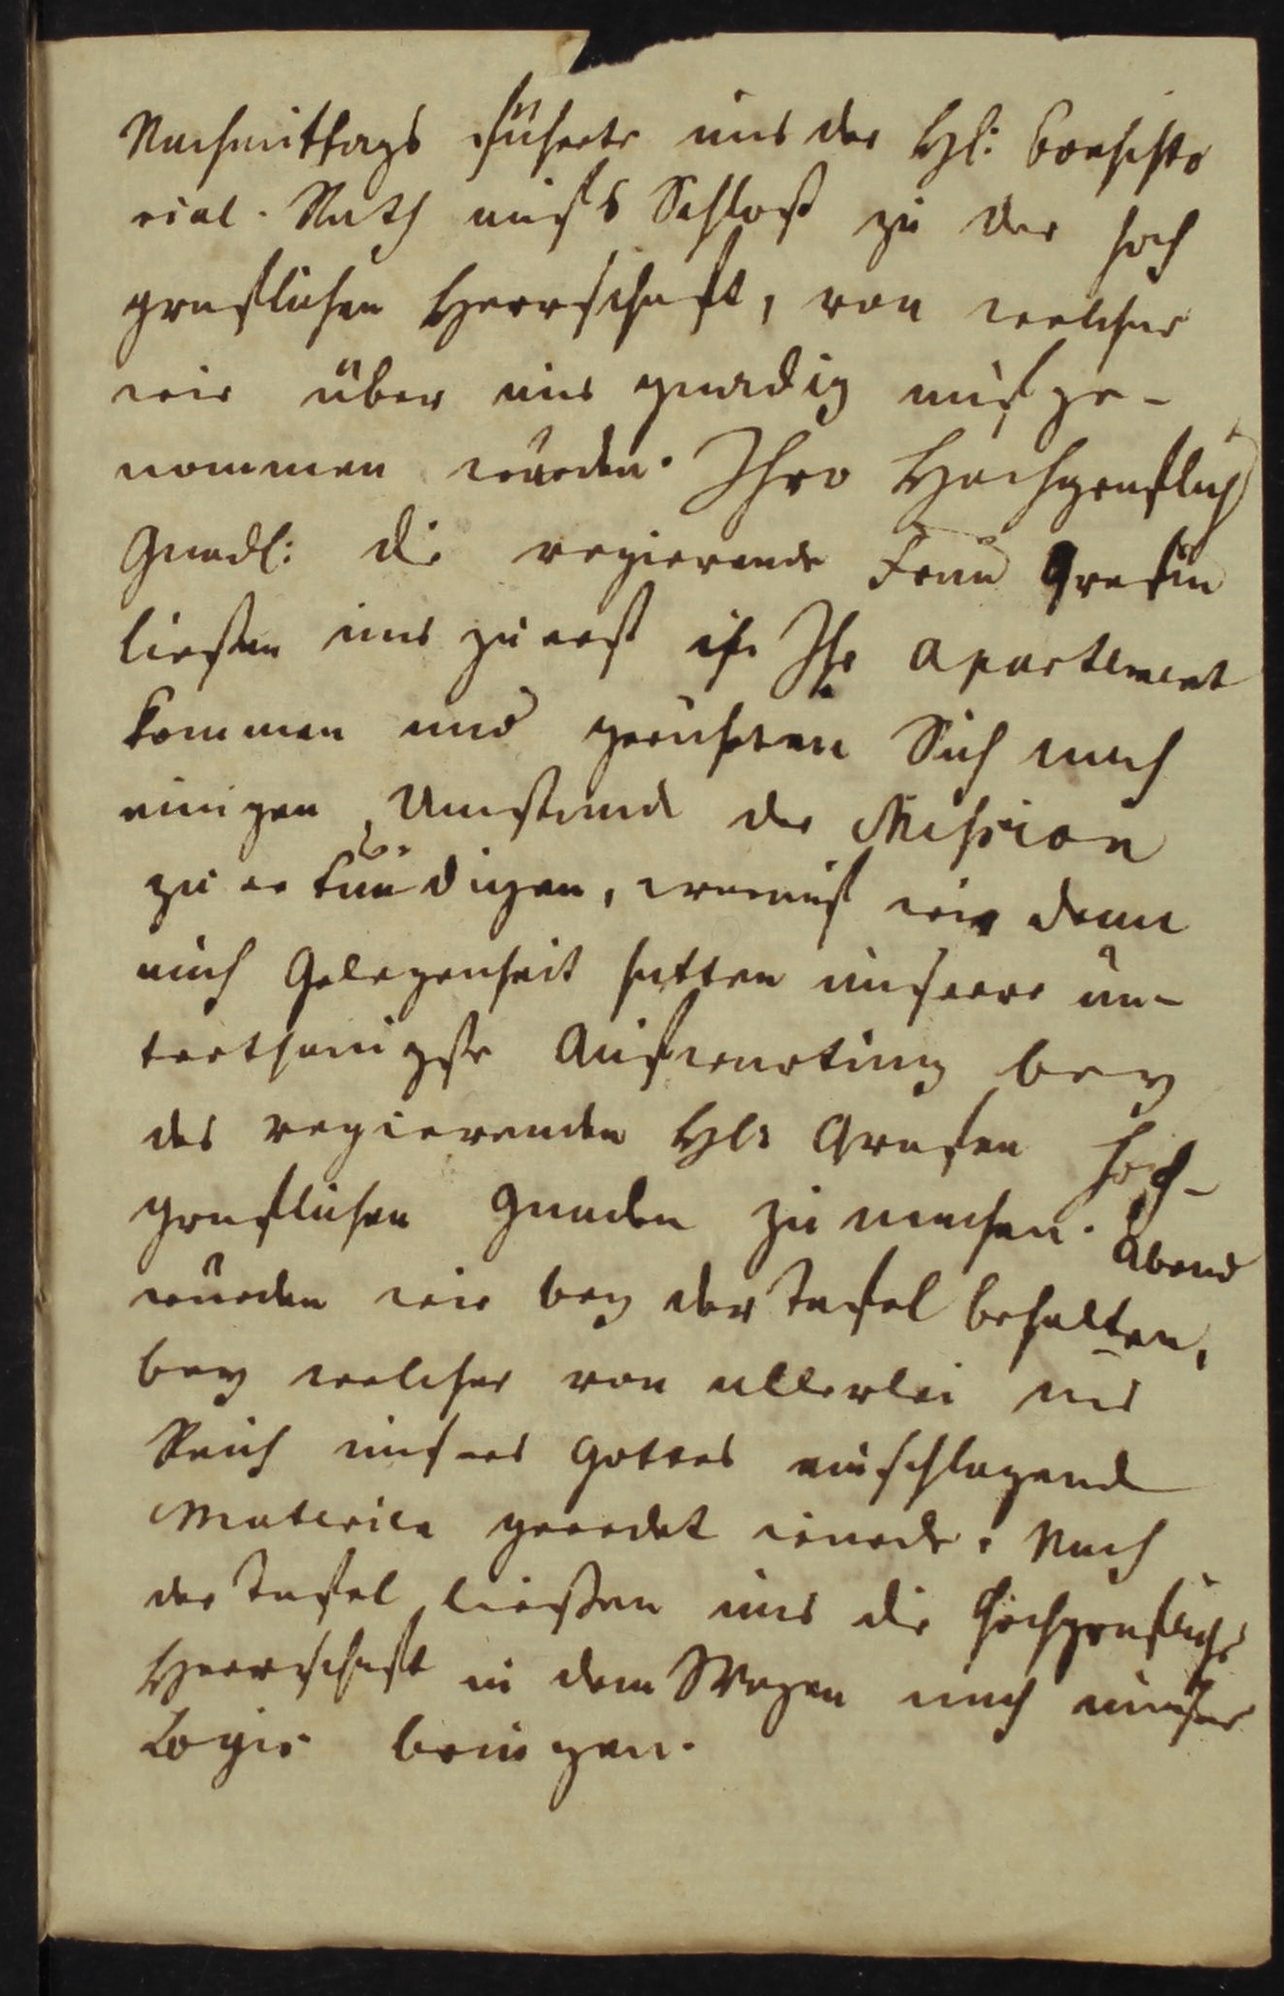 Nachmittags führete uns der Hl: Consisto
rial. Rath aufs Schloß zu der hoch
graflichen Herrschaft, von welcher
wir über uns gnadig aufge-
nommen wurden. Ihro Hochgraflich
Gnadl: die regierende Frau Grafin
ließen uns zu erst in Ihr Apartement
kommen und geruheten Sich nach
einigen Umstande der Mission
zu erkundigen, worauf wir denn
auch Gelegenheit hatten unsere un-
terthanigste Aufwartung bey
des regierenden Hl: Grafen Hoch-
graflichen Gnaden zu machen. Abend
wurden wir bey der Tafel behalten,
bey welcher von allerlei ins
Reich unsers Gottes einschlagend
Materien geredet wurde. Nach
der Tafel ließen uns die Hochgrafliche
Herrschaft in dem Wagen nach unser
Logis bringen.